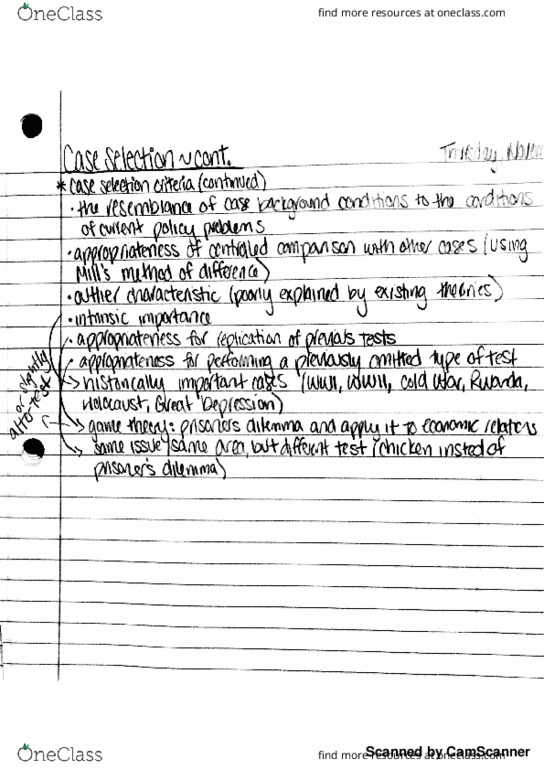 OneClass
find more resources at oneclass.com
Case Selection ~ cont.
* Case selection criteria (continued)
• the resemblance of case background conditions to the conditions
of current policy problems
• appropriateness of controlled comparison with other cases (using
Mill's method of difference)
• outlier characteristic (poorly explained by existing theories)
• intrinsic importance
• appropriateness for replication of previous tests
• appropriateness for performing a previously omitted type of test
→ historically important cases (WWI, WWII, Cold War, Rwanda,
Holocaust, Great Depression)
→ game theory: prisoner's dilemma and apply it to economic relations
→ same issue/same area, but different test (chicken insted of
prisoner's dilemma)
or slightly
alter test
OneClass
find more resources at oneclass.com
Scanned by CamScanner